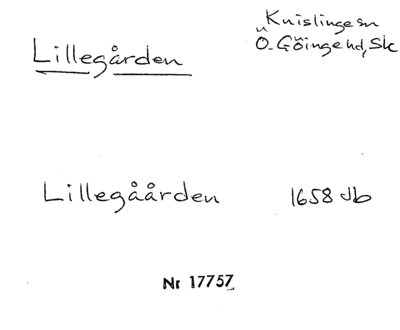 Lillegården
Knislinge sn
Ö. Göinge hd, Sk
Lillegåården 1658 Jb
Nr 17757